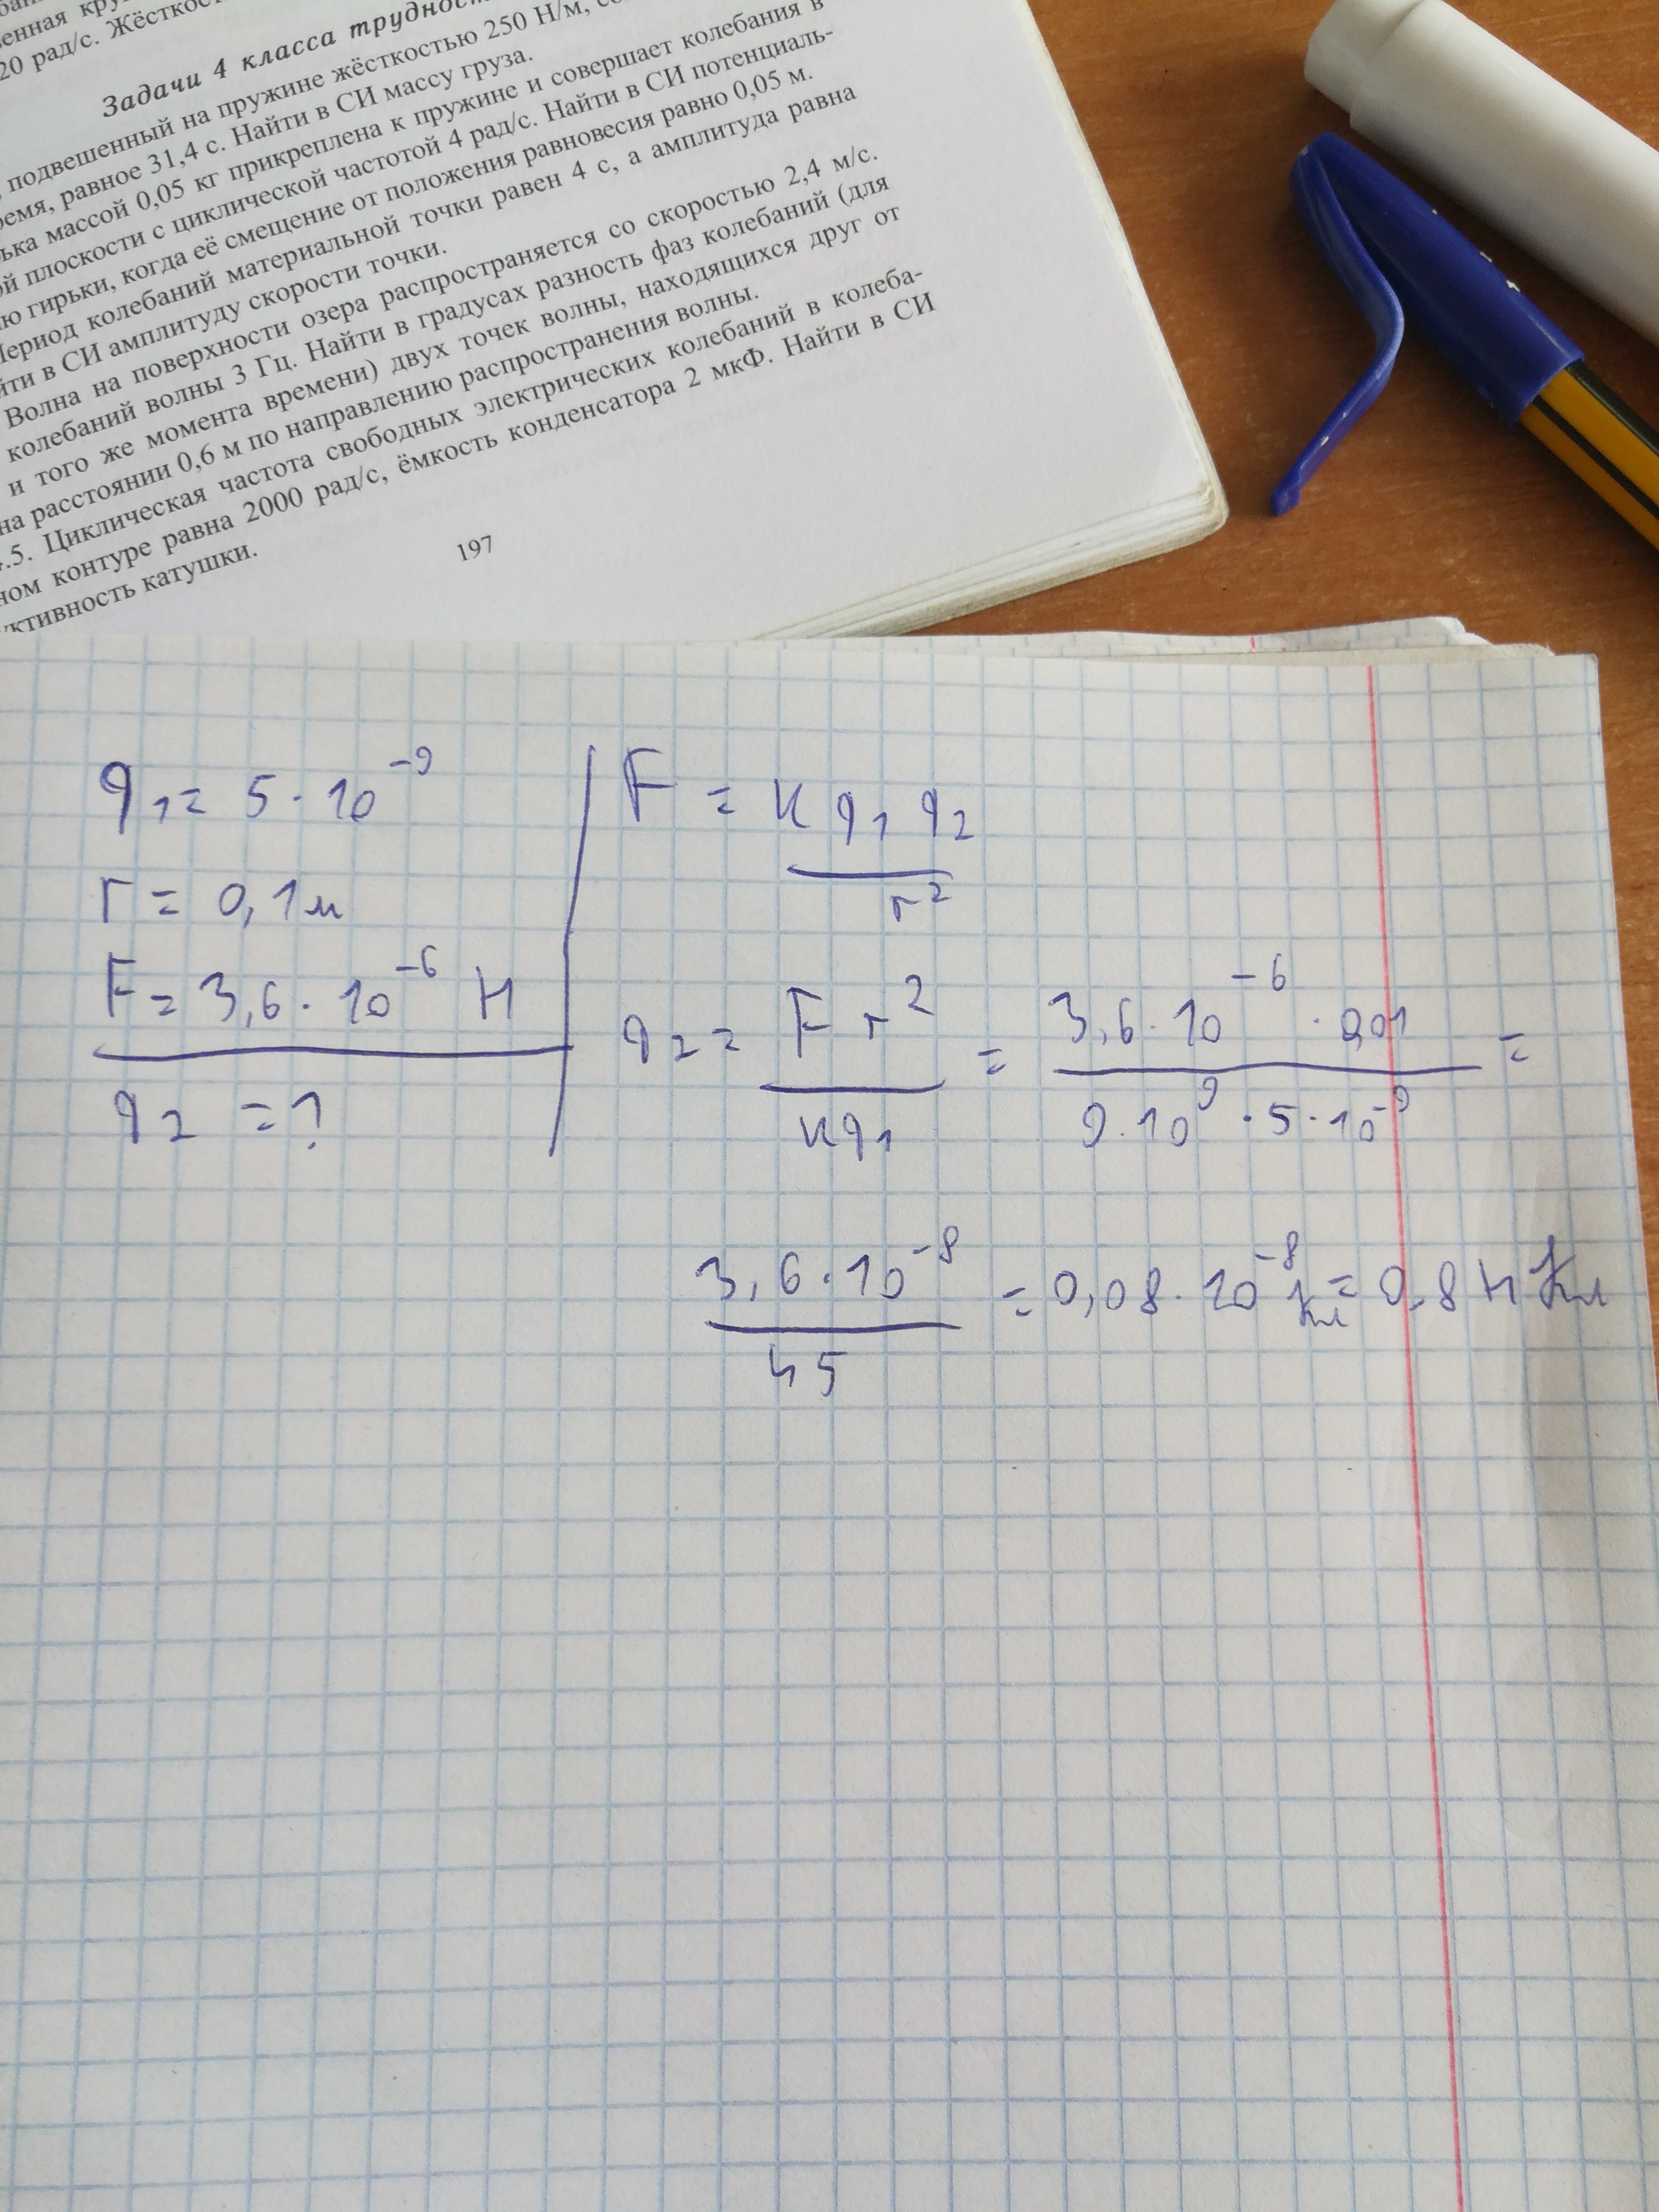 20 рад/с.
Задачи 4 класса
подвешенный на пружине жёсткостью 250 Н/м,
равное 31,4 с. Найти в СИ массу груза.
массой 0,05 кг прикреплена к пружине и совершает колебания в
плоскости с циклической частотой 4 рад/с. Найти в СИ потенциаль-
гирьки, когда её смещение от положения равновесия равно 0,05 м.
Период колебаний материальной точки равен 4 с, а амплитуда равна
в СИ амплитуду скорости точки.
Волна на поверхности озера распространяется со скоростью 2,4 м/с.
колебаний волны 3 Гц. Найти в градусах разность фаз колебаний (для
и того же момента времени) двух точек волны, находящихся друг от
на расстоянии 0,6 м по направлению распространения волны.
.5. Циклическая частота свободных электрических колебаний в колеба-
ном контуре равна 2000 рад/с, ёмкость конденсатора 2 мкФ. Найти в СИ
уктивность катушки.
197
q₁ = 5 · 10⁻⁹
r = 0,1 м
F = 3,6 · 10⁻⁶ Н
q₂ = ?
F = k q₁ q₂ / r²
q₂ = F r² / k q₁ = 3,6 · 10⁻⁶ · 0,01 / 9 · 10⁹ · 5 · 10⁻⁹ =
3,6 · 10⁻⁸ / 45 = 0,08 · 10⁻⁸ Кл = 0,8 н Кл